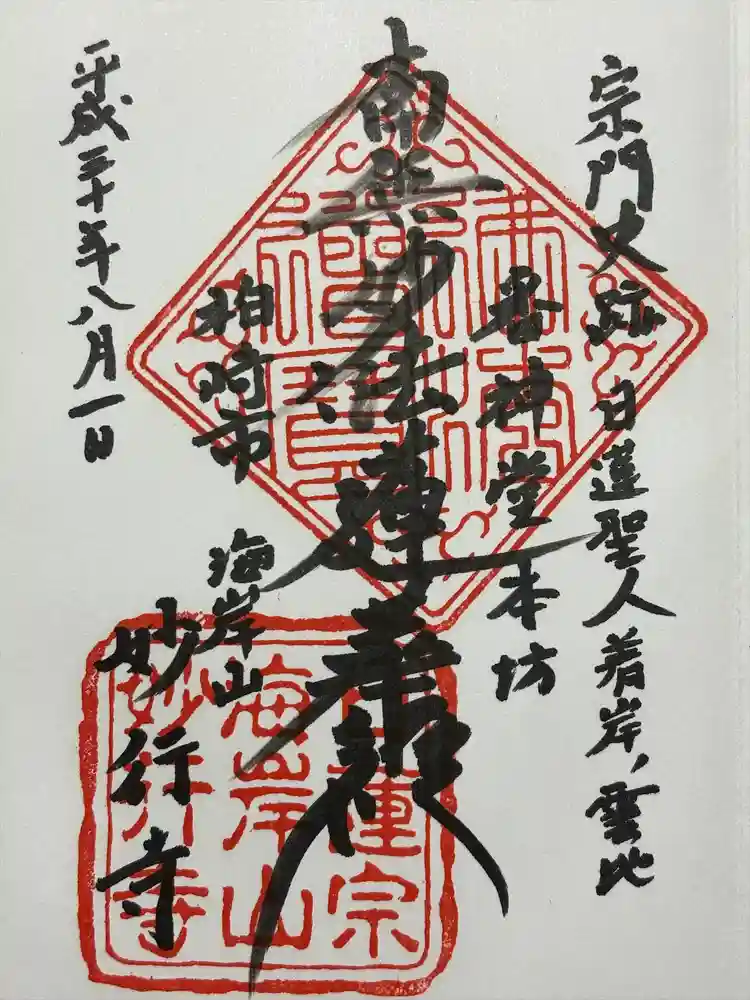 宗門史跡 日蓮聖人着岸ノ霊地
番神堂 本坊
南無妙法蓮華経
柏崎市
海岸山
妙行寺
平成三十年八月一日
日蓮宗
海岸山
妙行寺